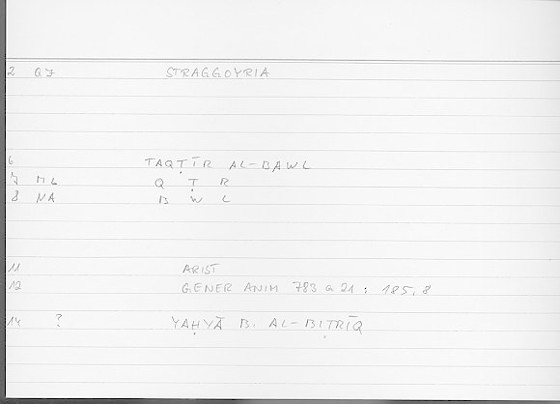 2 QY STRAGGOYRIA
6 TAQṬĪR AL-BAWL
7 ML Q Ṭ R
8 NA B W L
11 ARIST
12 GENER ANIM 783 a 21 : 185,8
14 ? YAḤYĀ B. AL-BIṬRĪQ